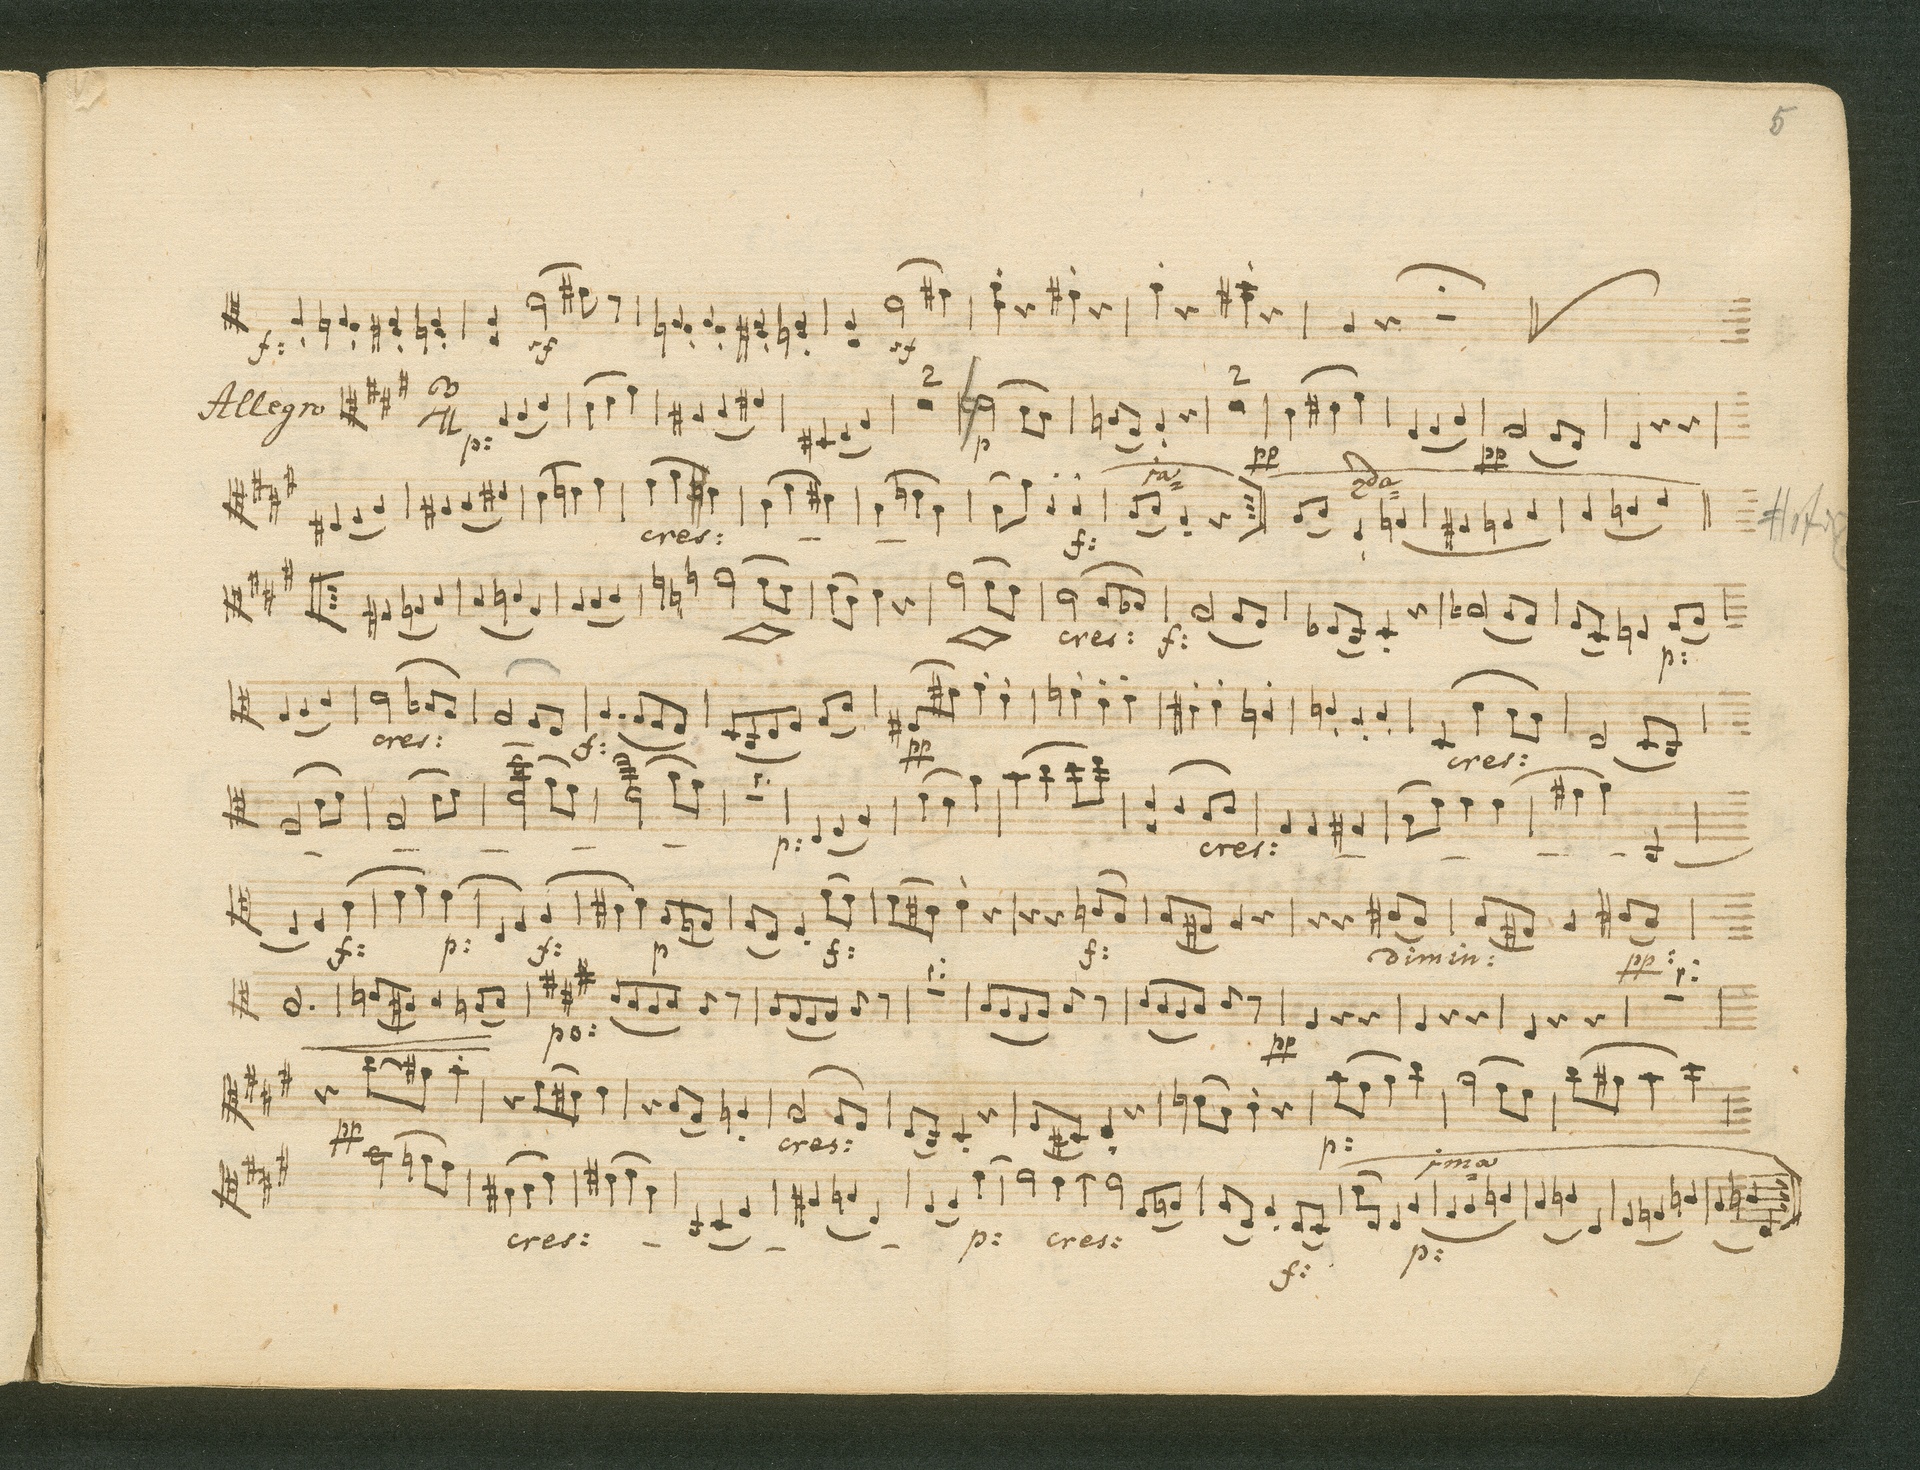 5
f: rf rf
Allegro 3/4 p: 2 p 2 pp pp
cres: f: 1a 2da
cres: f: p:
cres: f: pp cres:
p: cres:
f: p: f: p f: f: dimin: pp:
po: pp
pp cres: p:
cres: p: cres: f: p: ima